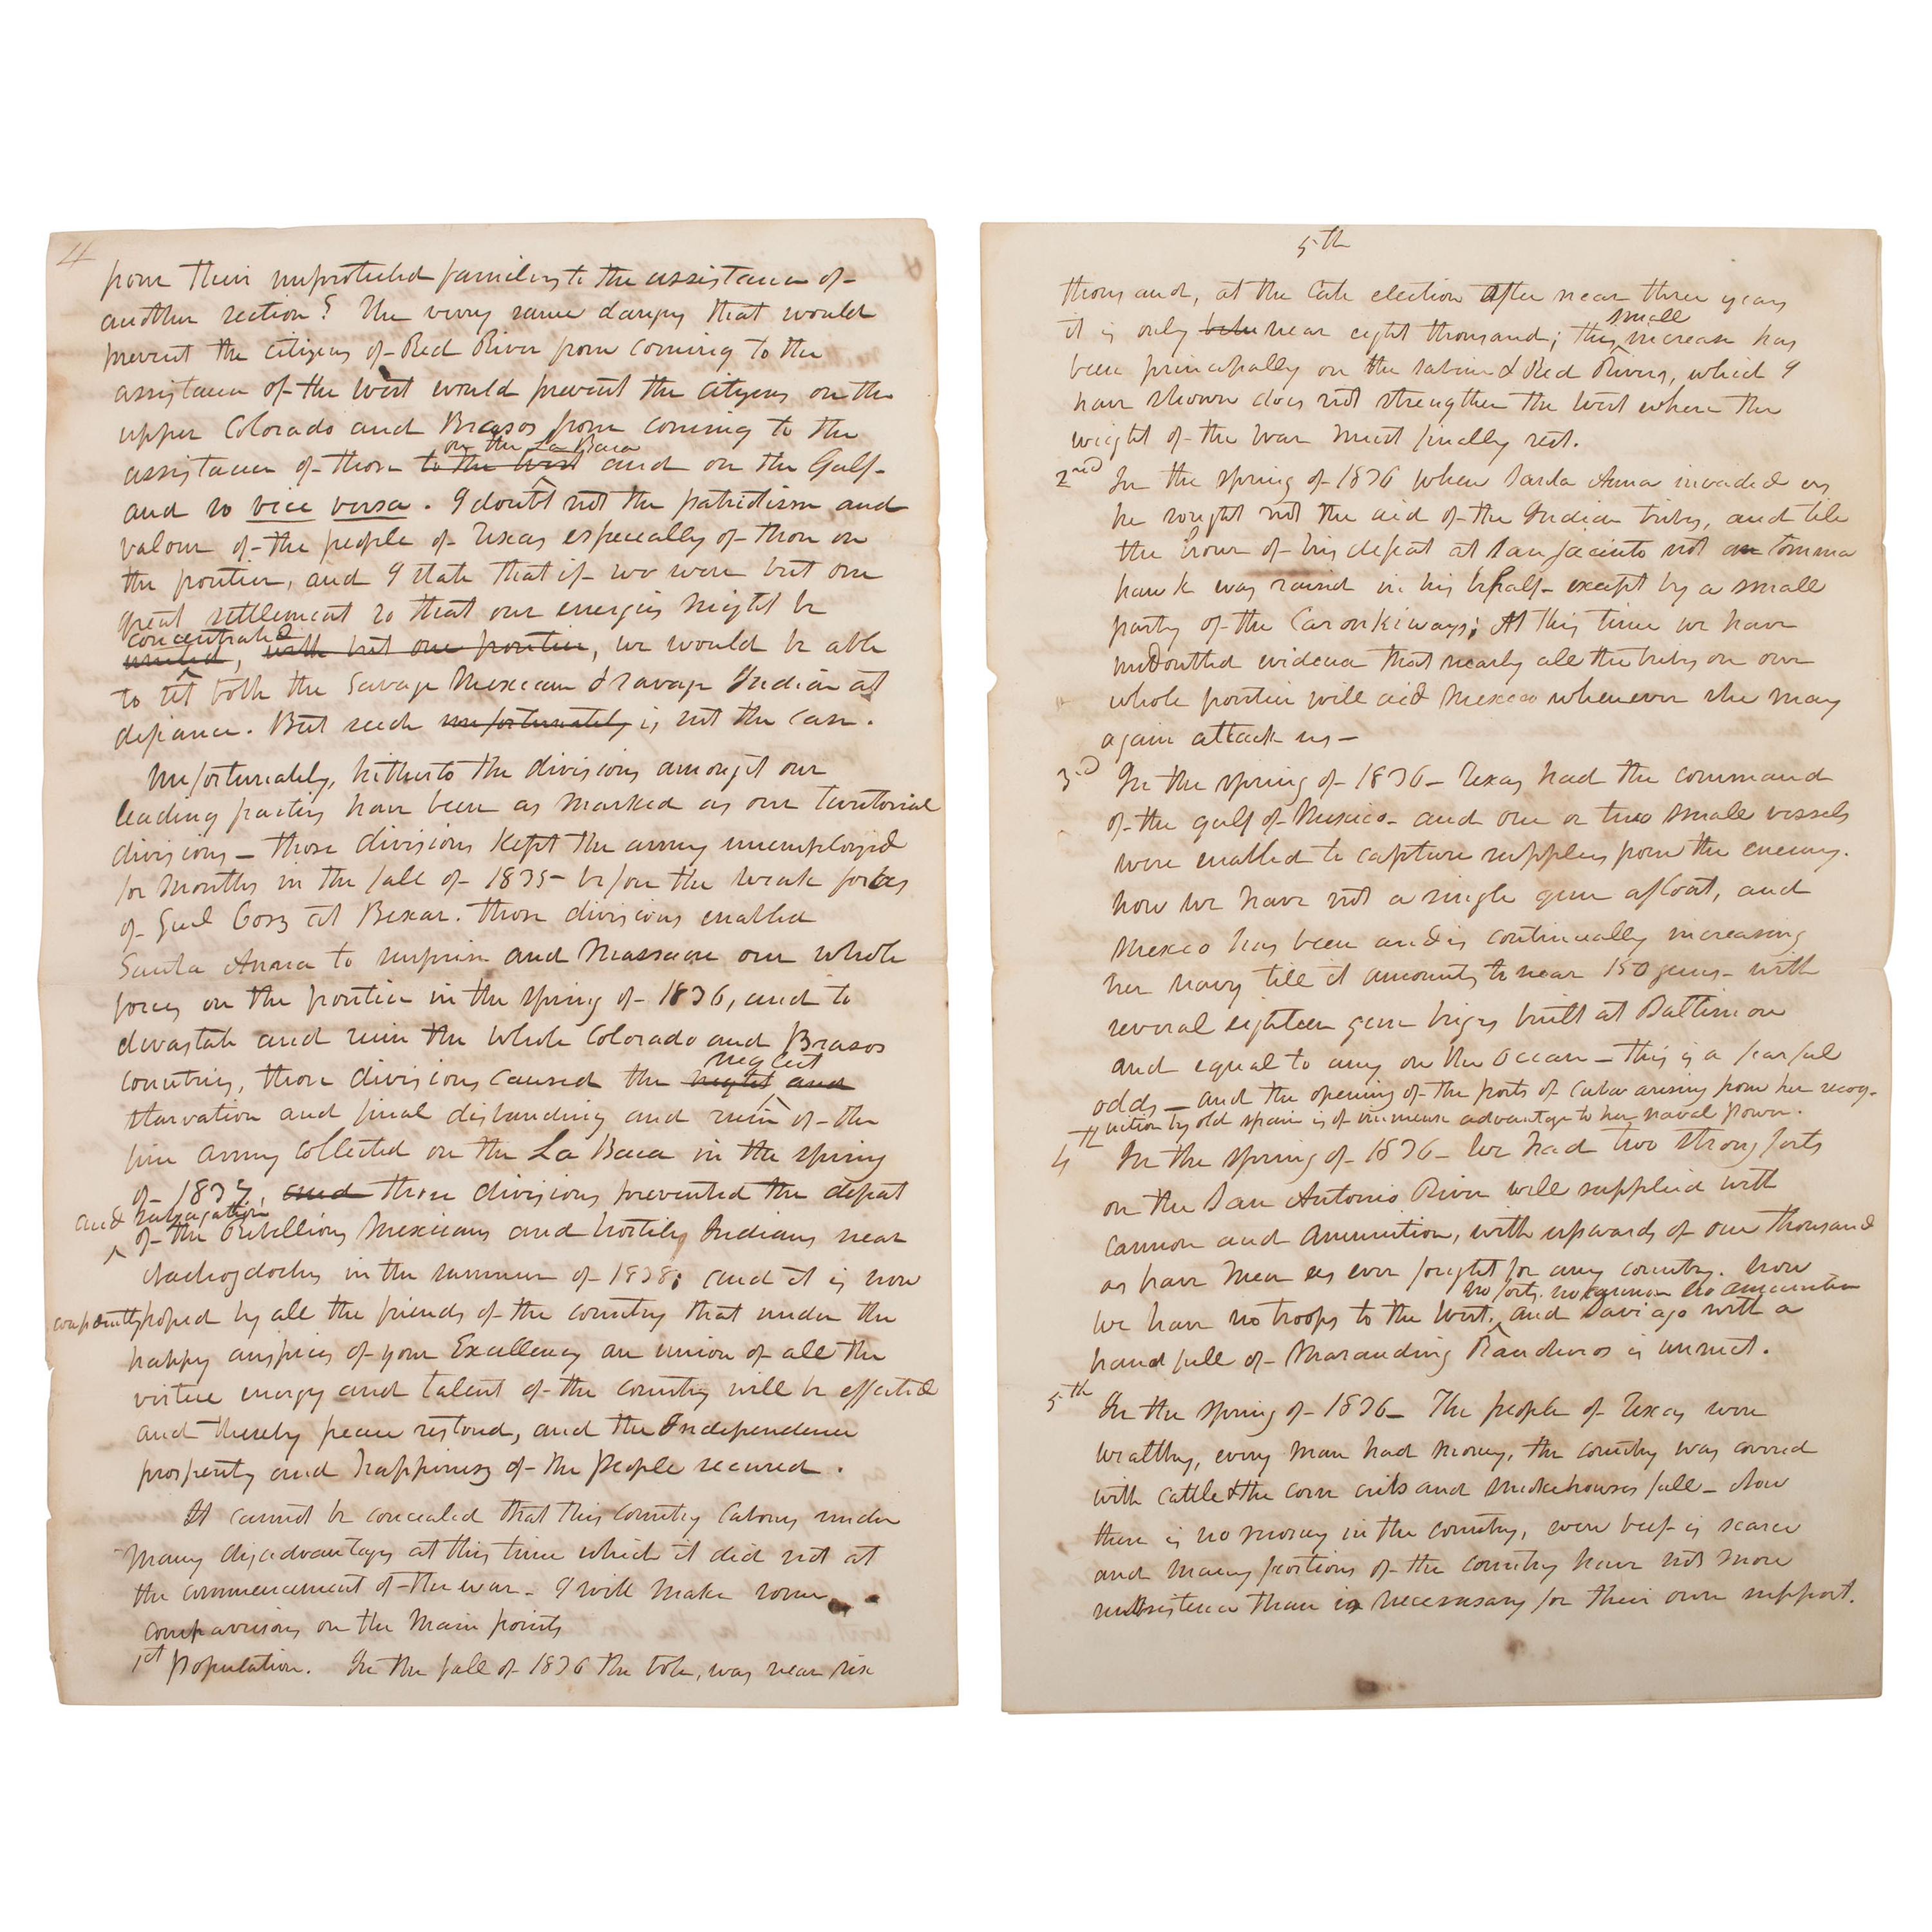 4
from their unprotected families to the assistance of
another section? The very same dangers that would
prevent the citizens of Red River from coming to the
assistance of the West would prevent the citizens on the
upper Colorado and Brasos from coming to the
on the La Baca
assistance of those to the West and on the Gulf
and so vice versa. I doubt not the patriotism and
valour of the people of Texas especially of those on
the frontier, and I state that if we were but one
great settlement so that our energies might be
concentrated
united, with but one frontier, we would be able
to set both the Savage Mexican & savage Indian at
defiance. But such unfortunately is not the case.
Unfortunately, hitherto the divisions amongst our
leading parties have been as marked as our territorial
divisions – those divisions kept the army unemployed
for months in the fall of 1835 before the weak forces
of Genl Cos at Bexar. those divisions enabled
Santa Anna to surprise and massacre our whole
forces on the frontier in the spring of 1836, and to
devastate and ruin the whole Colorado and Brasos
neglect
countries, those divisions caused the neglet and
starvation and final disbanding and ruin of the
fine army collected on the La Baca in the spring
of 1837, and those divisions prevented the defeat
and subjugation
of the Rebellious Mexicans and hostile Indians near
Nachogdoches in the summer of 1838; and it is now
confidently hoped by all the friends of the country that under the
happy auspices of your Excellency an union of all the
virtue energy and talent of the country will be effected
and thereby peace restored, and the Independence
prosperity and happiness of the people secured.
It cannot be concealed that this country labours under
many disadvantages at this time which it did not at
the commencement of the war – I will make some
comparisons on the main points
1st Population. In the fall of 1836 the vote, was near six
5th
thousand, at the late election after near three years
small
it is only betw near eight thousand; this increase has
been principally on the sabine & Red Rivers, which I
have shown does not strengthen the West where the
weight of the war must finally rest.
2nd In the spring of 1836 when Santa Anna invaded us
he sought not the aid of the Indian tribes, and till
the hour of his defeat at San Jacinto not a tomma
hawk was raised in his behalf except by a small
party of the Caronkiways; At this time we have
undoubted evidence that nearly all the tribes on our
whole frontier will aid Mexico whenever she may
again attack us –
3d In the spring of 1836 – Texas had the command
of the gulf of Mexico – and one or two small vessels
were enabled to capture supplies from the enemy.
now we have not a single gun afloat, and
Mexico has been and is continually increasing
her navy till it amounts to near 150 guns – with
several eighteen gun brigs built at Baltimore
and equal to any on the Ocean – this is a fearful
odds – and the opening of the ports of Cuba arising from her recog-
nition by old spain is of immense advantage to her naval power.
4th In the spring of 1836 – We had two strong forts
on the San Antonio River well supplied with
cannon and ammunition, with upwards of one thousand
as brave men as ever fought for any country. now
no forts. no cannon no ammunition
we have no troops to the West, and Saviago with a
hand full of Marauding Rancheros is unmet.
5th In the spring of 1836 – The people of Texas were
wealthy, every man had money, the country was covered
with cattle & the corn cribs and smokehouses full – Now
there is no money in the country, even beef is scarce
and many portions of the country have not more
subsistence than is necessary for their own support.